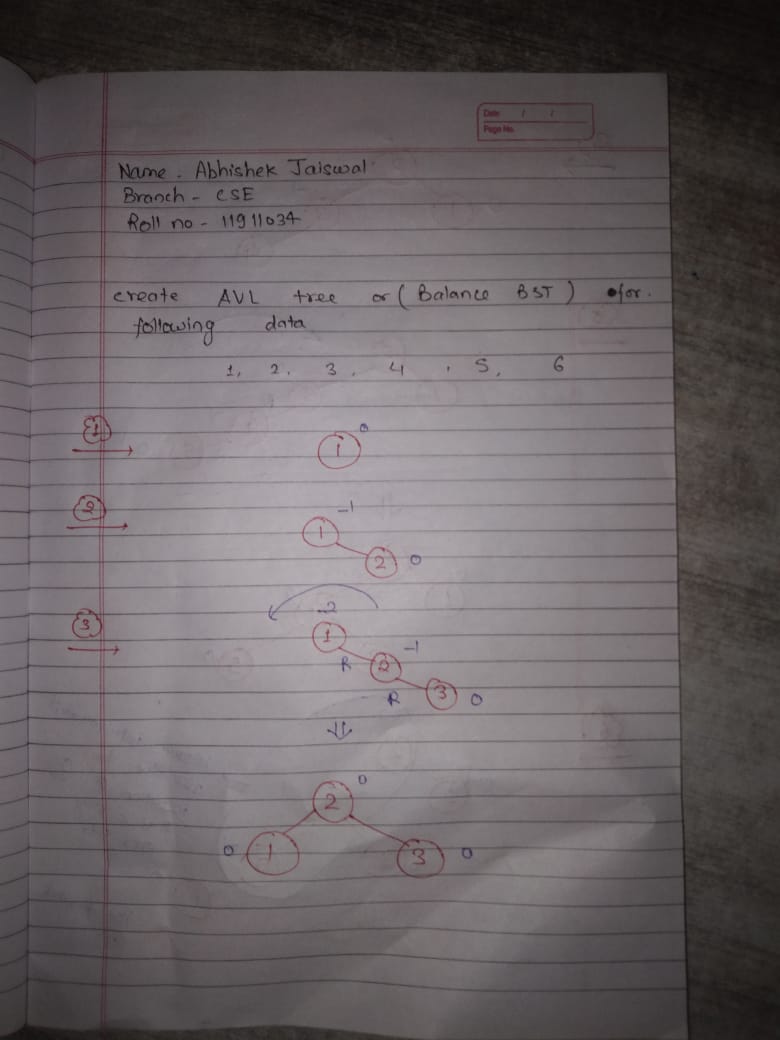 Date / /
Page No.
Name. Abhishek Jaiswal
Branch - CSE
Roll no - 11911034
create AVL tree or ( Balance BST ) for.
following data
1, 2, 3, 4, 5, 6
1
0
1
2
-1
1
2 0
3
-2
1
-1
R 2
R 3 0
⇓
0
2
0 1 3 0